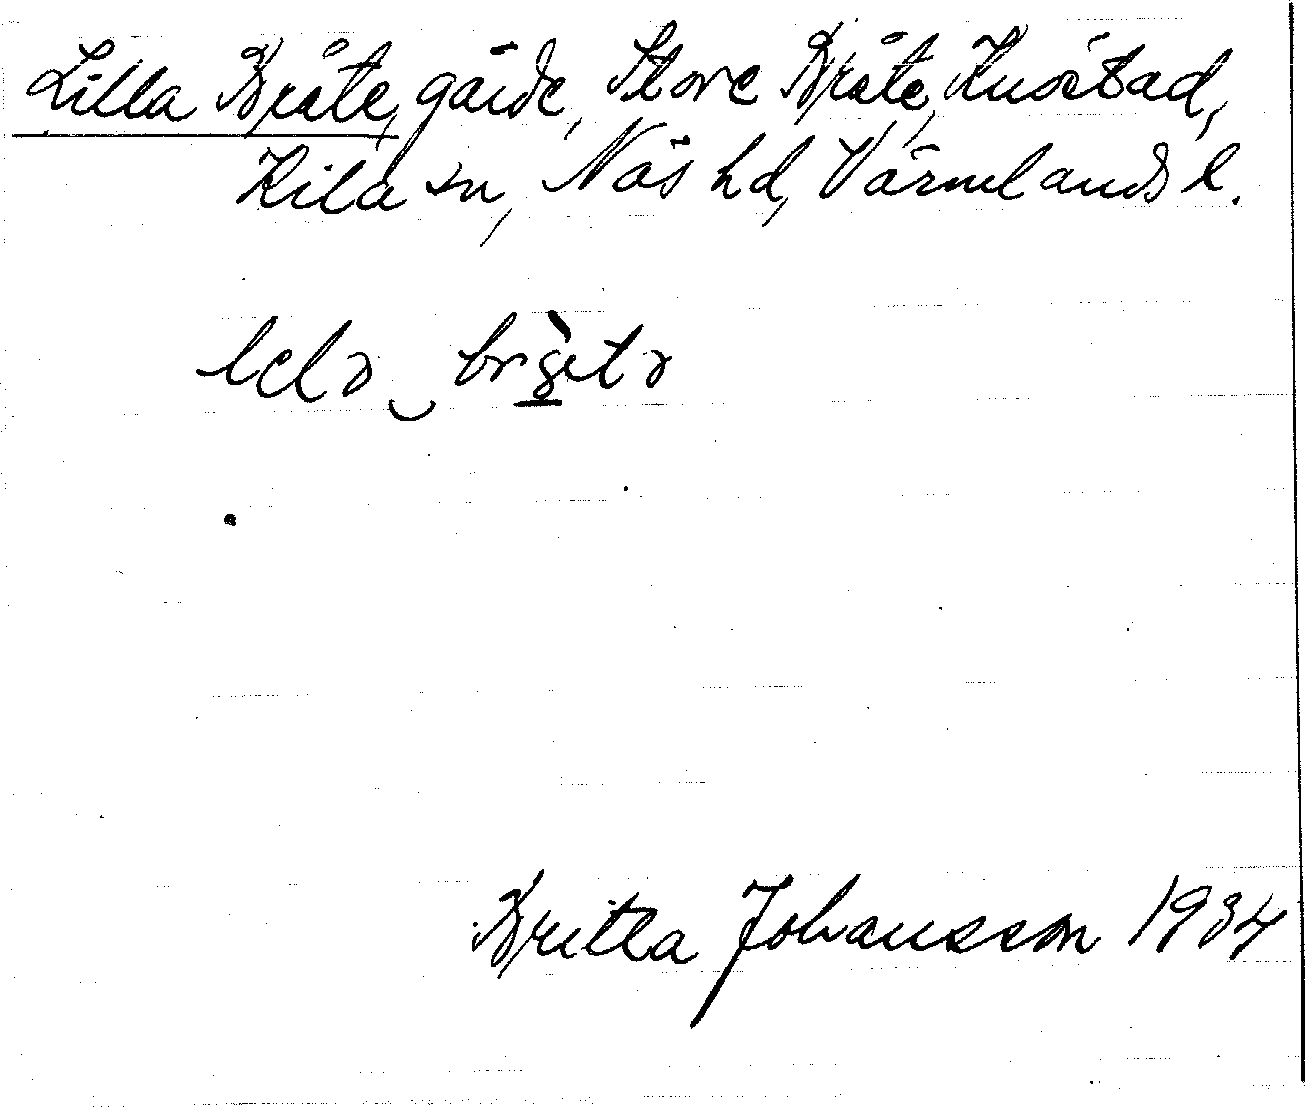 Lilla Bråte, gärde, Stora Bråte, Knöstad,
Kila sn, Näs hd, Värmlands l.
Britta Johansson 1934